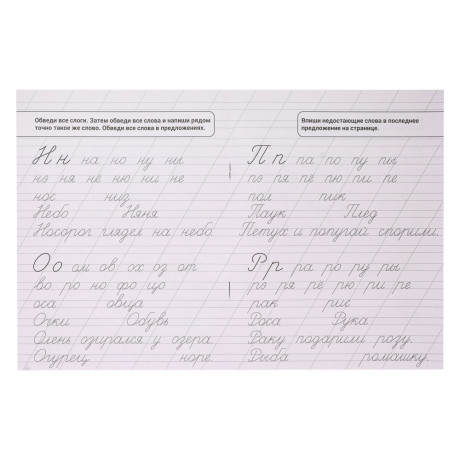 Обведи все слоги. Затем обведи все слова и напиши рядом
точно такое же слово. Обведи все слова в предложениях.
Н н на но ну ны
нь ня нё ню ни не
нос низ
Небо Няня
Носорог глядел на небо.
О о ом ов ох оз от
во ро но фо цо
оса овца
Очки Обувь
Олень озирался у озера.
Огурец норе.
Впиши недостающие слова в последнее
предложение на странице.
П п па по пу пы
пь пя пё пю пи пе
пол пик
Паук Плед
Петух и попугай спорили.
Р р ра ро ру ры
рь ря рё рю ри ре
рак рис
Роса Рука
Раку подарили розу.
Рыба ромашку.